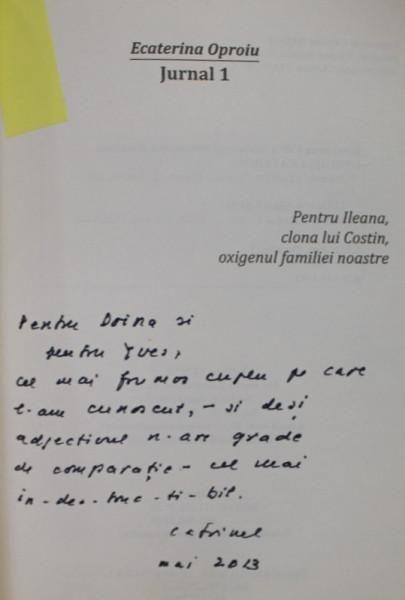 Ecaterina Oproiu
Jurnal 1
Pentru Ileana,
clona lui Costin,
oxigenul familiei noastre
Pentru Doina si
pentru Yves,
cel mai frumos cuplu pe care
l-am cunoscut, – si deși
adjectivul n-are grade
de comparație – cel mai
in-des-truc-ti-bil.
Catrinel
mai 2013